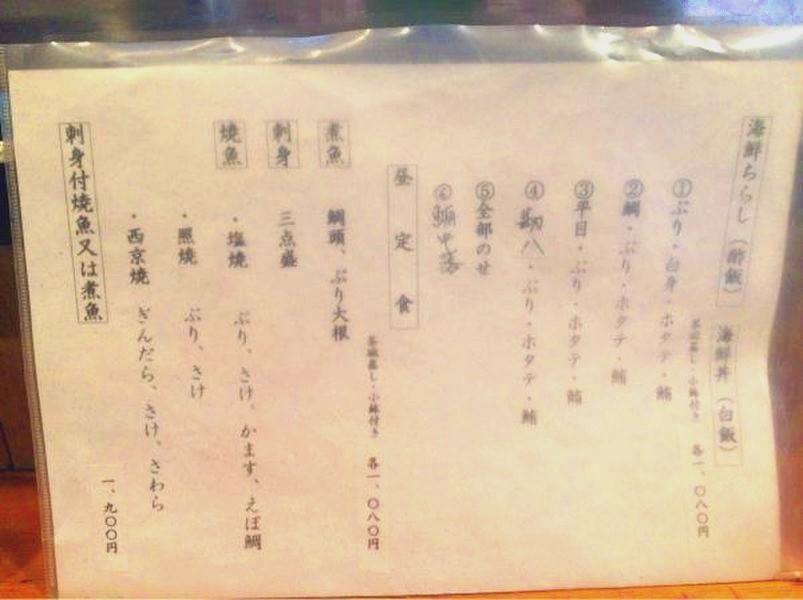 海鮮ちらし（酢飯）　海鮮丼（白飯）
茶碗蒸し・小鉢付き　各一、〇八〇円
①ぶり・白身・ホタテ・鮪
②鯛・ぶり・ホタテ・鮪
③平目・ぶり・ホタテ・鮪
④勘八・ぶり・ホタテ・鮪
⑤全部のせ
⑥
昼定食
茶碗蒸し・小鉢付き　各一、〇八〇円
煮魚　鯛頭、ぶり大根
刺身　三点盛
焼魚　・塩焼　ぶり、さけ、かます、えぼ鯛
・照焼　ぶり、さけ
・西京焼　ぎんだら、さけ、さわら
刺身付焼魚又は煮魚　一、九〇〇円